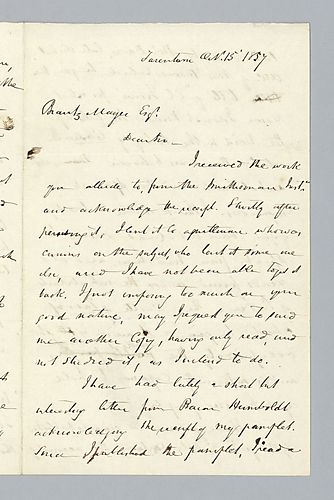 Tarentum Oct. 15th 1857
Brantz Mayer Esq.
Dear Sir —
I received the work
you allude to, from the Smithsonian Inst.
and acknowledged the receipt. Shortly after
perusing it, I lent it to a gentleman who was
curious on the subject, who lent it some one
else, and I have not been able to get it
back. If not imposing too much on your
good nature, may I request you to send
me another Copy, having only read, and
not studied it, as I intend to do.
I have had lately a short but
interesting letter from Baron Humboldt
acknowledging the receipt of my pamphlet.
Since I published the pamphlet, I read a